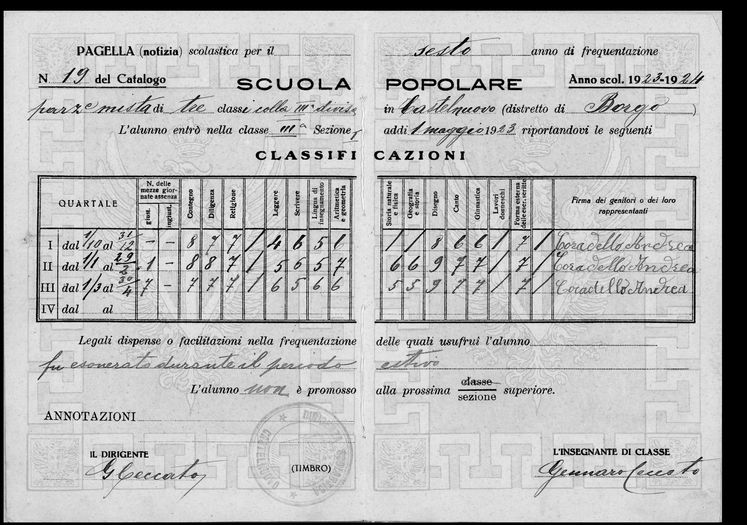 PAGELLA (notizia) scolastica per il sesto anno di frequentazione
N. 19 del Catalogo SCUOLA POPOLARE Anno scol. 1923-1924
parz.e mista di tre classi colla IIIa divisa in Castelnuovo (distretto di Borgo)
L'alunno entrò nella classe IIIa Sezione addì 1 maggio 1923 riportandovi le seguenti
CLASSIFICAZIONI
QUARTALE N. delle mezze giornate assenza giust. ingiust. Contegno Diligenza Religione Leggere Scrivere Lingua di insegnamento Aritmetica e geometria Storia naturale e fisica Geografia e storia Disegno Canto Ginnastica Lavori donneschi Forma esterna delle eser. scritte Firma dei genitori o dei loro rappresentanti
I dal 1/10 al 31/12 - - 8 7 7 / 4 6 5 6 / / 8 6 6 / 7 / Coradello Andrea
II dal 1/1 al 29/2 1 - 8 8 7 / 5 6 5 7 6 6 9 7 7 / 7 / Coradello Andrea
III dal 1/3 al 30/4 7 - 7 7 7 / 6 5 6 6 5 5 9 7 7 / 7 / Coradello Andrea
IV dal al
Legali dispense o facilitazioni nella frequentazione delle quali usufruì l'alunno
fu esonerato durante il periodo estivo
L'alunno non è promosso alla prossima classe/sezione superiore.
ANNOTAZIONI
IL DIRIGENTE (TIMBRO) L'INSEGNANTE DI CLASSE
G Ceccato Gennaro Ceccato